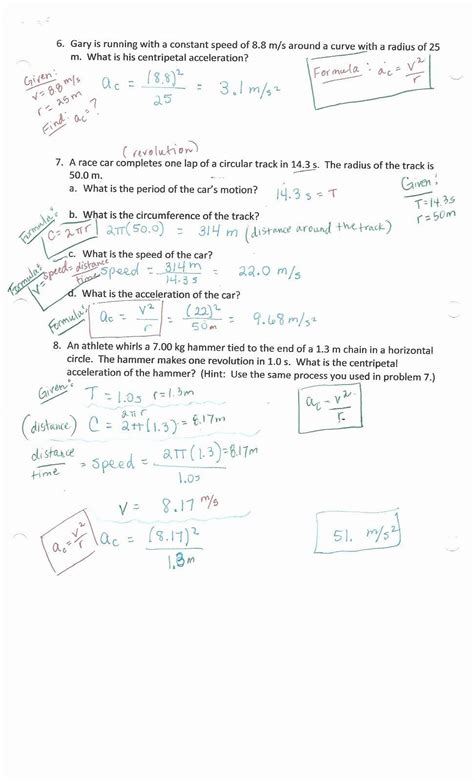 6. Gary is running with a constant speed of 8.8 m/s around a curve with a radius of 25
m. What is his centripetal acceleration?
Given:
v=8.8 m/s
r = 25m
Find: ac=?
ac = (8.8)² / 25 = 3.1 m/s²
Formula : ac = v² / r
(revolution)
7. A race car completes one lap of a circular track in 14.3 s. The radius of the track is
50.0 m.
a. What is the period of the car's motion? 14.3 s = T
Given:
T=14.3s
r=50m
b. What is the circumference of the track?
Formula:
C = 2πr 2π(50.0) = 314 m (distance around the track)
c. What is the speed of the car?
Formula:
V= speed = distance / time
speed = 314m / 14.3s = 22.0 m/s
d. What is the acceleration of the car?
Formula:
ac = v² / r = (22)² / 50m = 9.68 m/s²
8. An athlete whirls a 7.00 kg hammer tied to the end of a 1.3 m chain in a horizontal
circle. The hammer makes one revolution in 1.0 s. What is the centripetal
acceleration of the hammer? (Hint: Use the same process you used in problem 7.)
Given:
T = 1.0s r=1.3m
ac = v² / r
2πr
(distance) C = 2π(1.3) = 8.17m
distance / time = speed = 2π(1.3)=8.17m / 1.0s
v = 8.17 m/s
ac = v² / r
ac = (8.17)² / 1.3m
51. m/s²